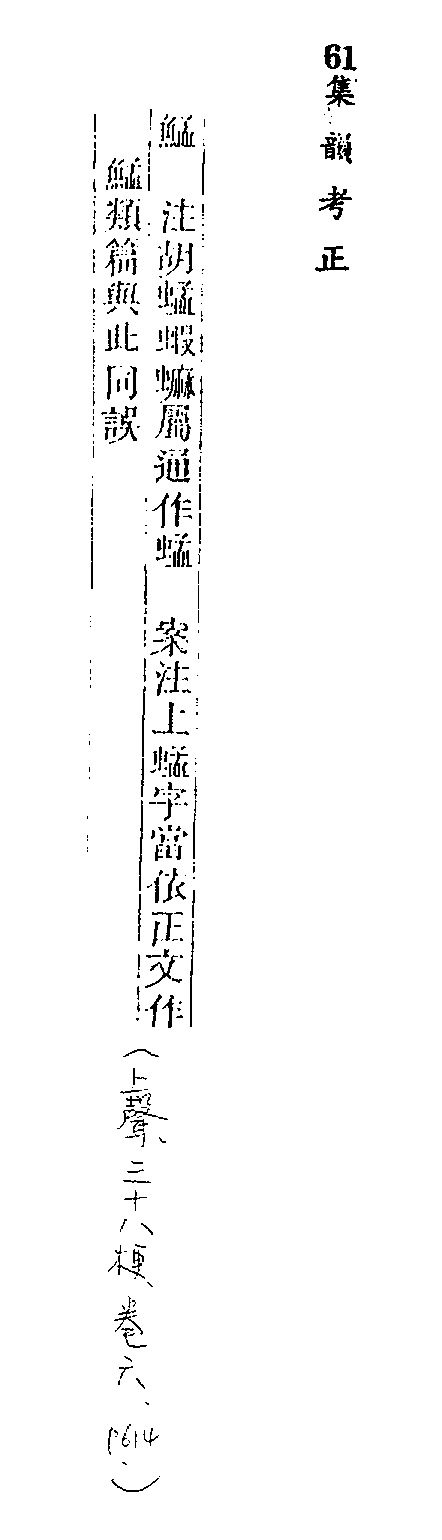 61集韻考正
䱋 注胡蜢蝦蟆屬通作蜢 案注上蜢字當依正文作
䱋類篇與此同誤
(上聲、三十八梗、卷六、p614.)